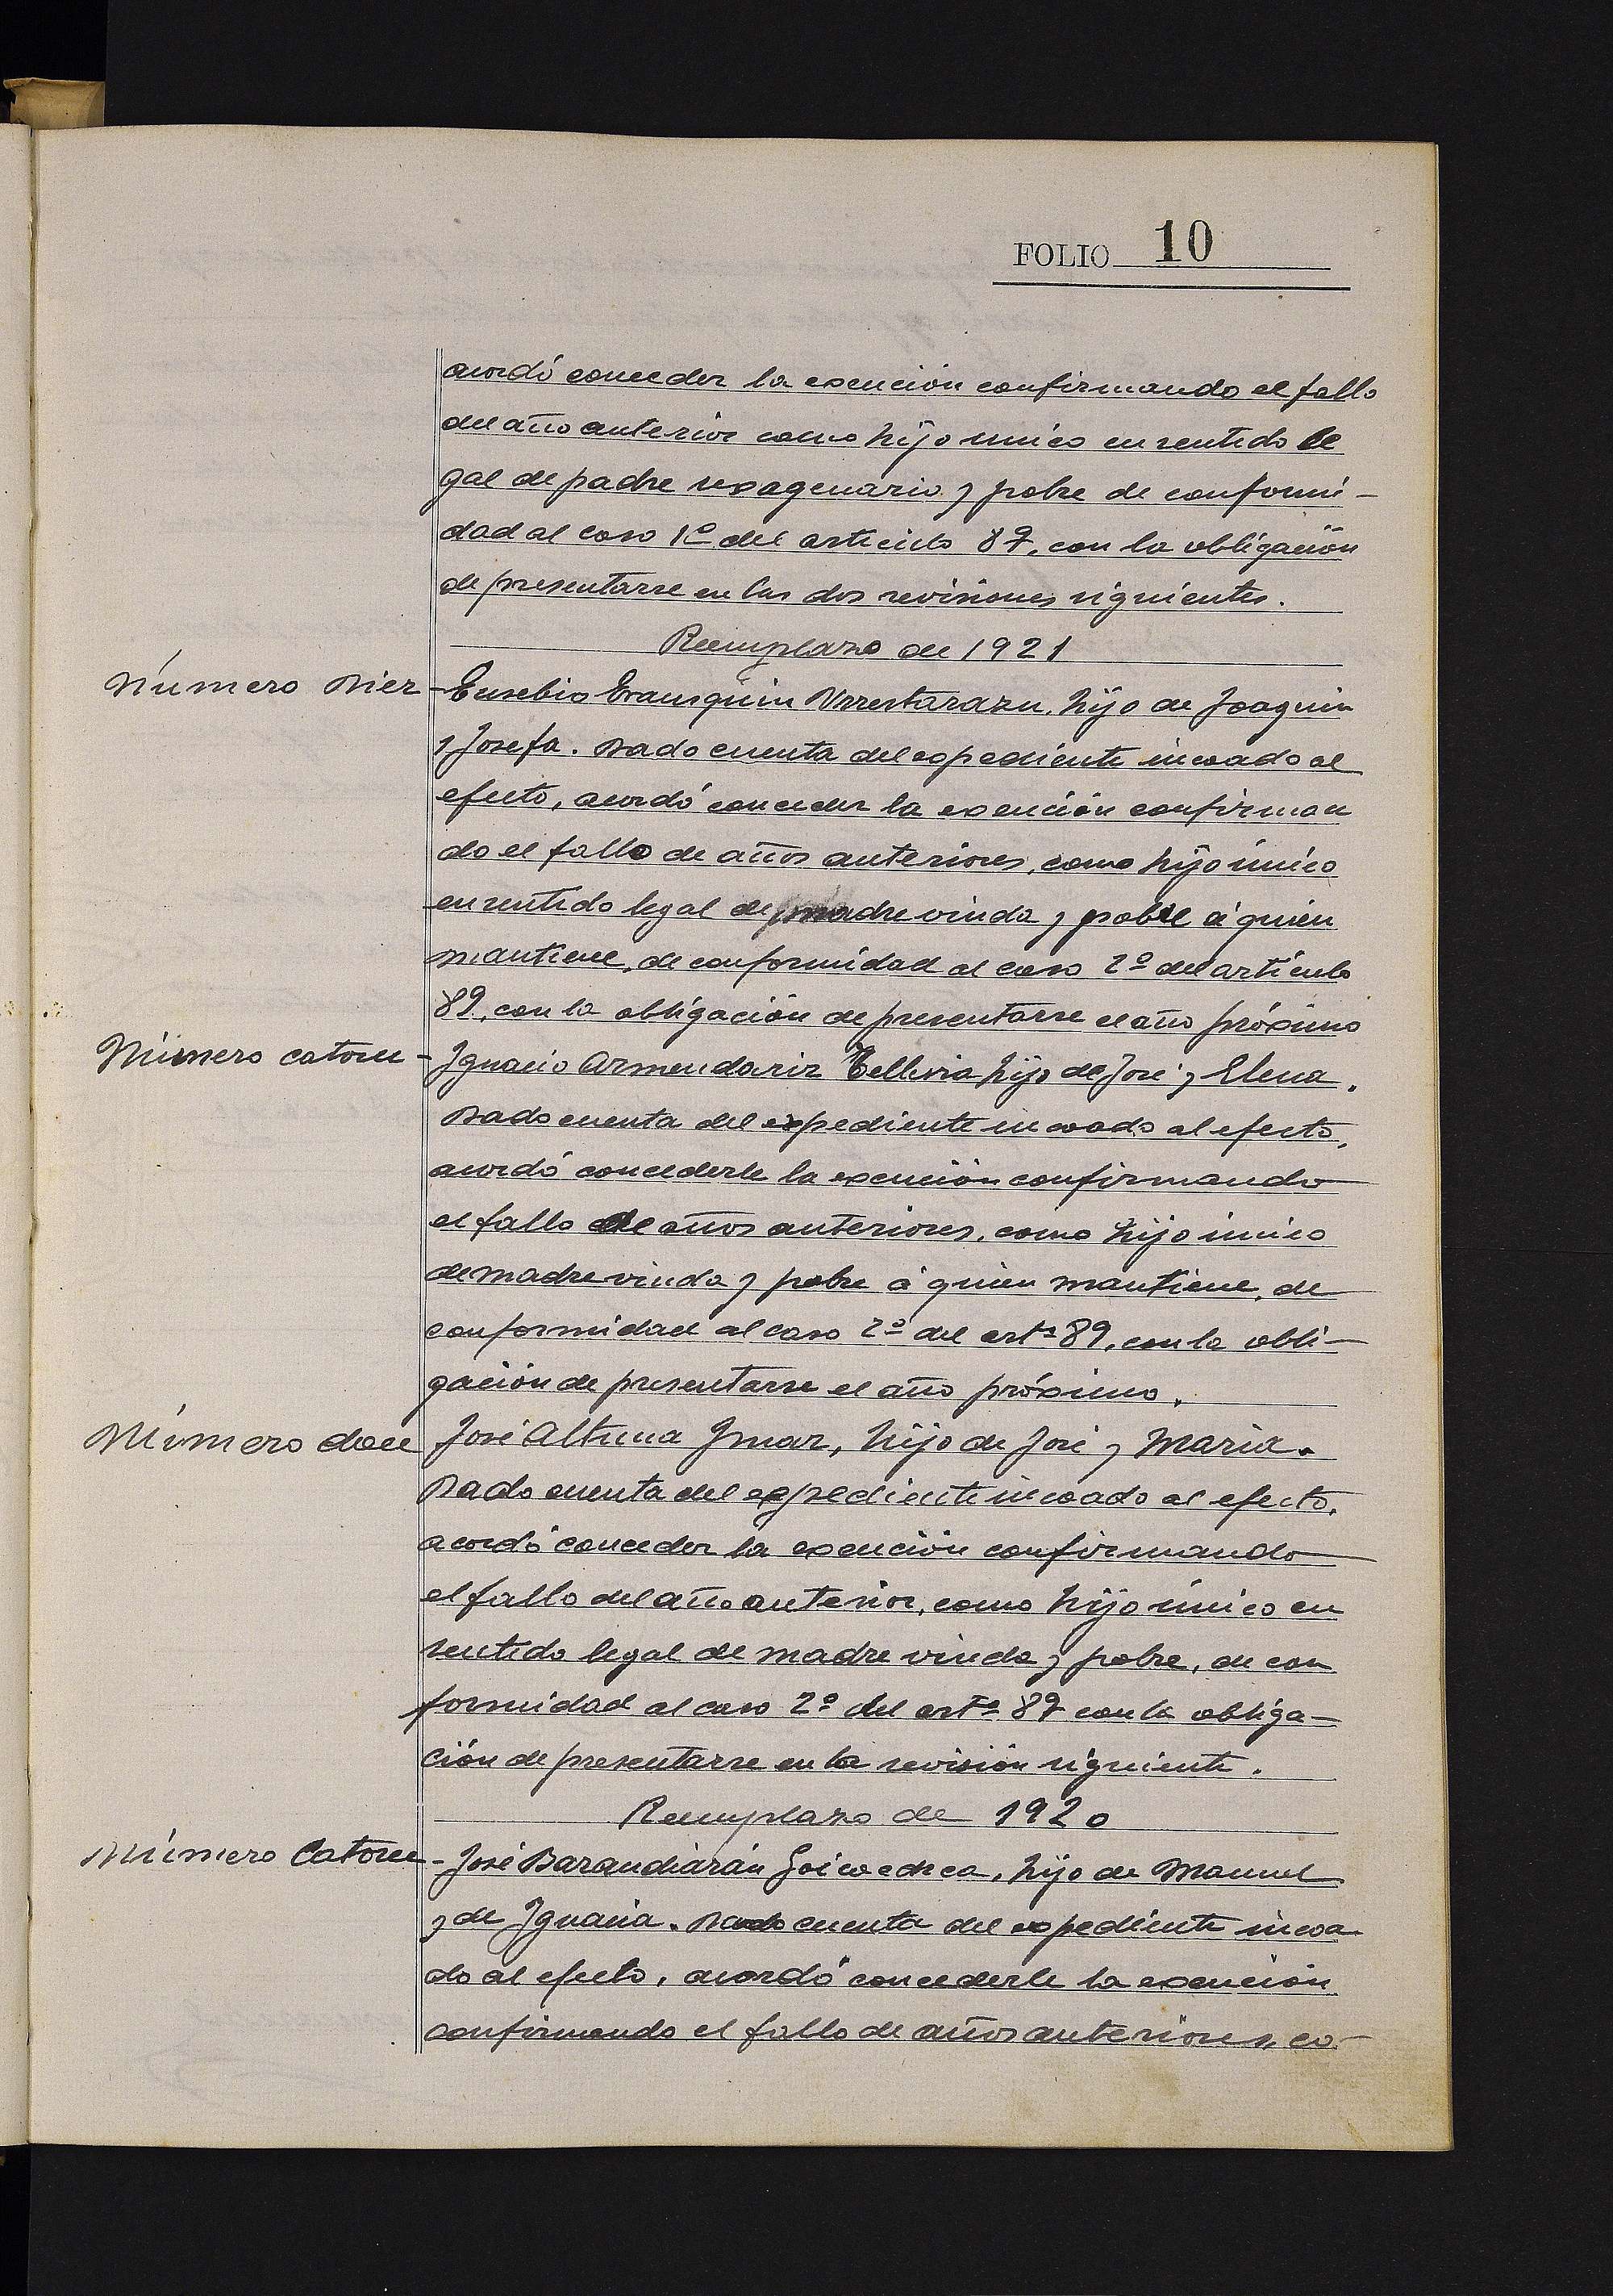 FOLIO 10
acordó conceder la exención confirmando el fallo
del año anterior como hijo único en sentido le
gal de padre sexagenario y pobre de conformi-
dad al caso 1º del artículo 89, con la obligación
de presentarse en las dos revisiones siguientes.
Reemplazo de 1921
Número Diez - Eusebio Erausquin Urrestarazu, hijo de Joaquin
y Josefa. Dado cuenta del expediente incoado al
efecto, acordó conceder la exención confirman
do el fallo de años anteriores, como hijo único
en sentido legal de madre viuda y pobre á quien
mantiene, de conformidad al caso 2º del artículo
89, con la obligación de presentarse el año próximo
Número catorce - Ignacio Armendariz Telleria hijo de José y Elena.
Dado cuenta del expediente incoado al efecto,
acordó concederle la exención confirmando
el fallo de años anteriores, como hijo único
de madre viuda y pobre á quien mantiene, de
conformidad al caso 2º del artº 89, con la obli-
gación de presentarse el año próximo.
Número doce José Altuna Ymaz, hijo de José y Maria.
Dado cuenta del expediente incoado al efecto,
acordó conceder la exención confirmando
el fallo del año anterior, como hijo único en
sentido legal de madre viuda y pobre, de con
formidad al caso 2º del artº 89 con la obliga-
ción de presentarse en la revisión siguiente.
Reemplazo de 1920
Número Catorce - José Barandiarán Goicoechea, hijo de Manuel
y de Ignacia. Dado cuenta del expediente incoa-
do al efecto, acordó concederle la exención
confirmando el fallo de años anteriores, co-